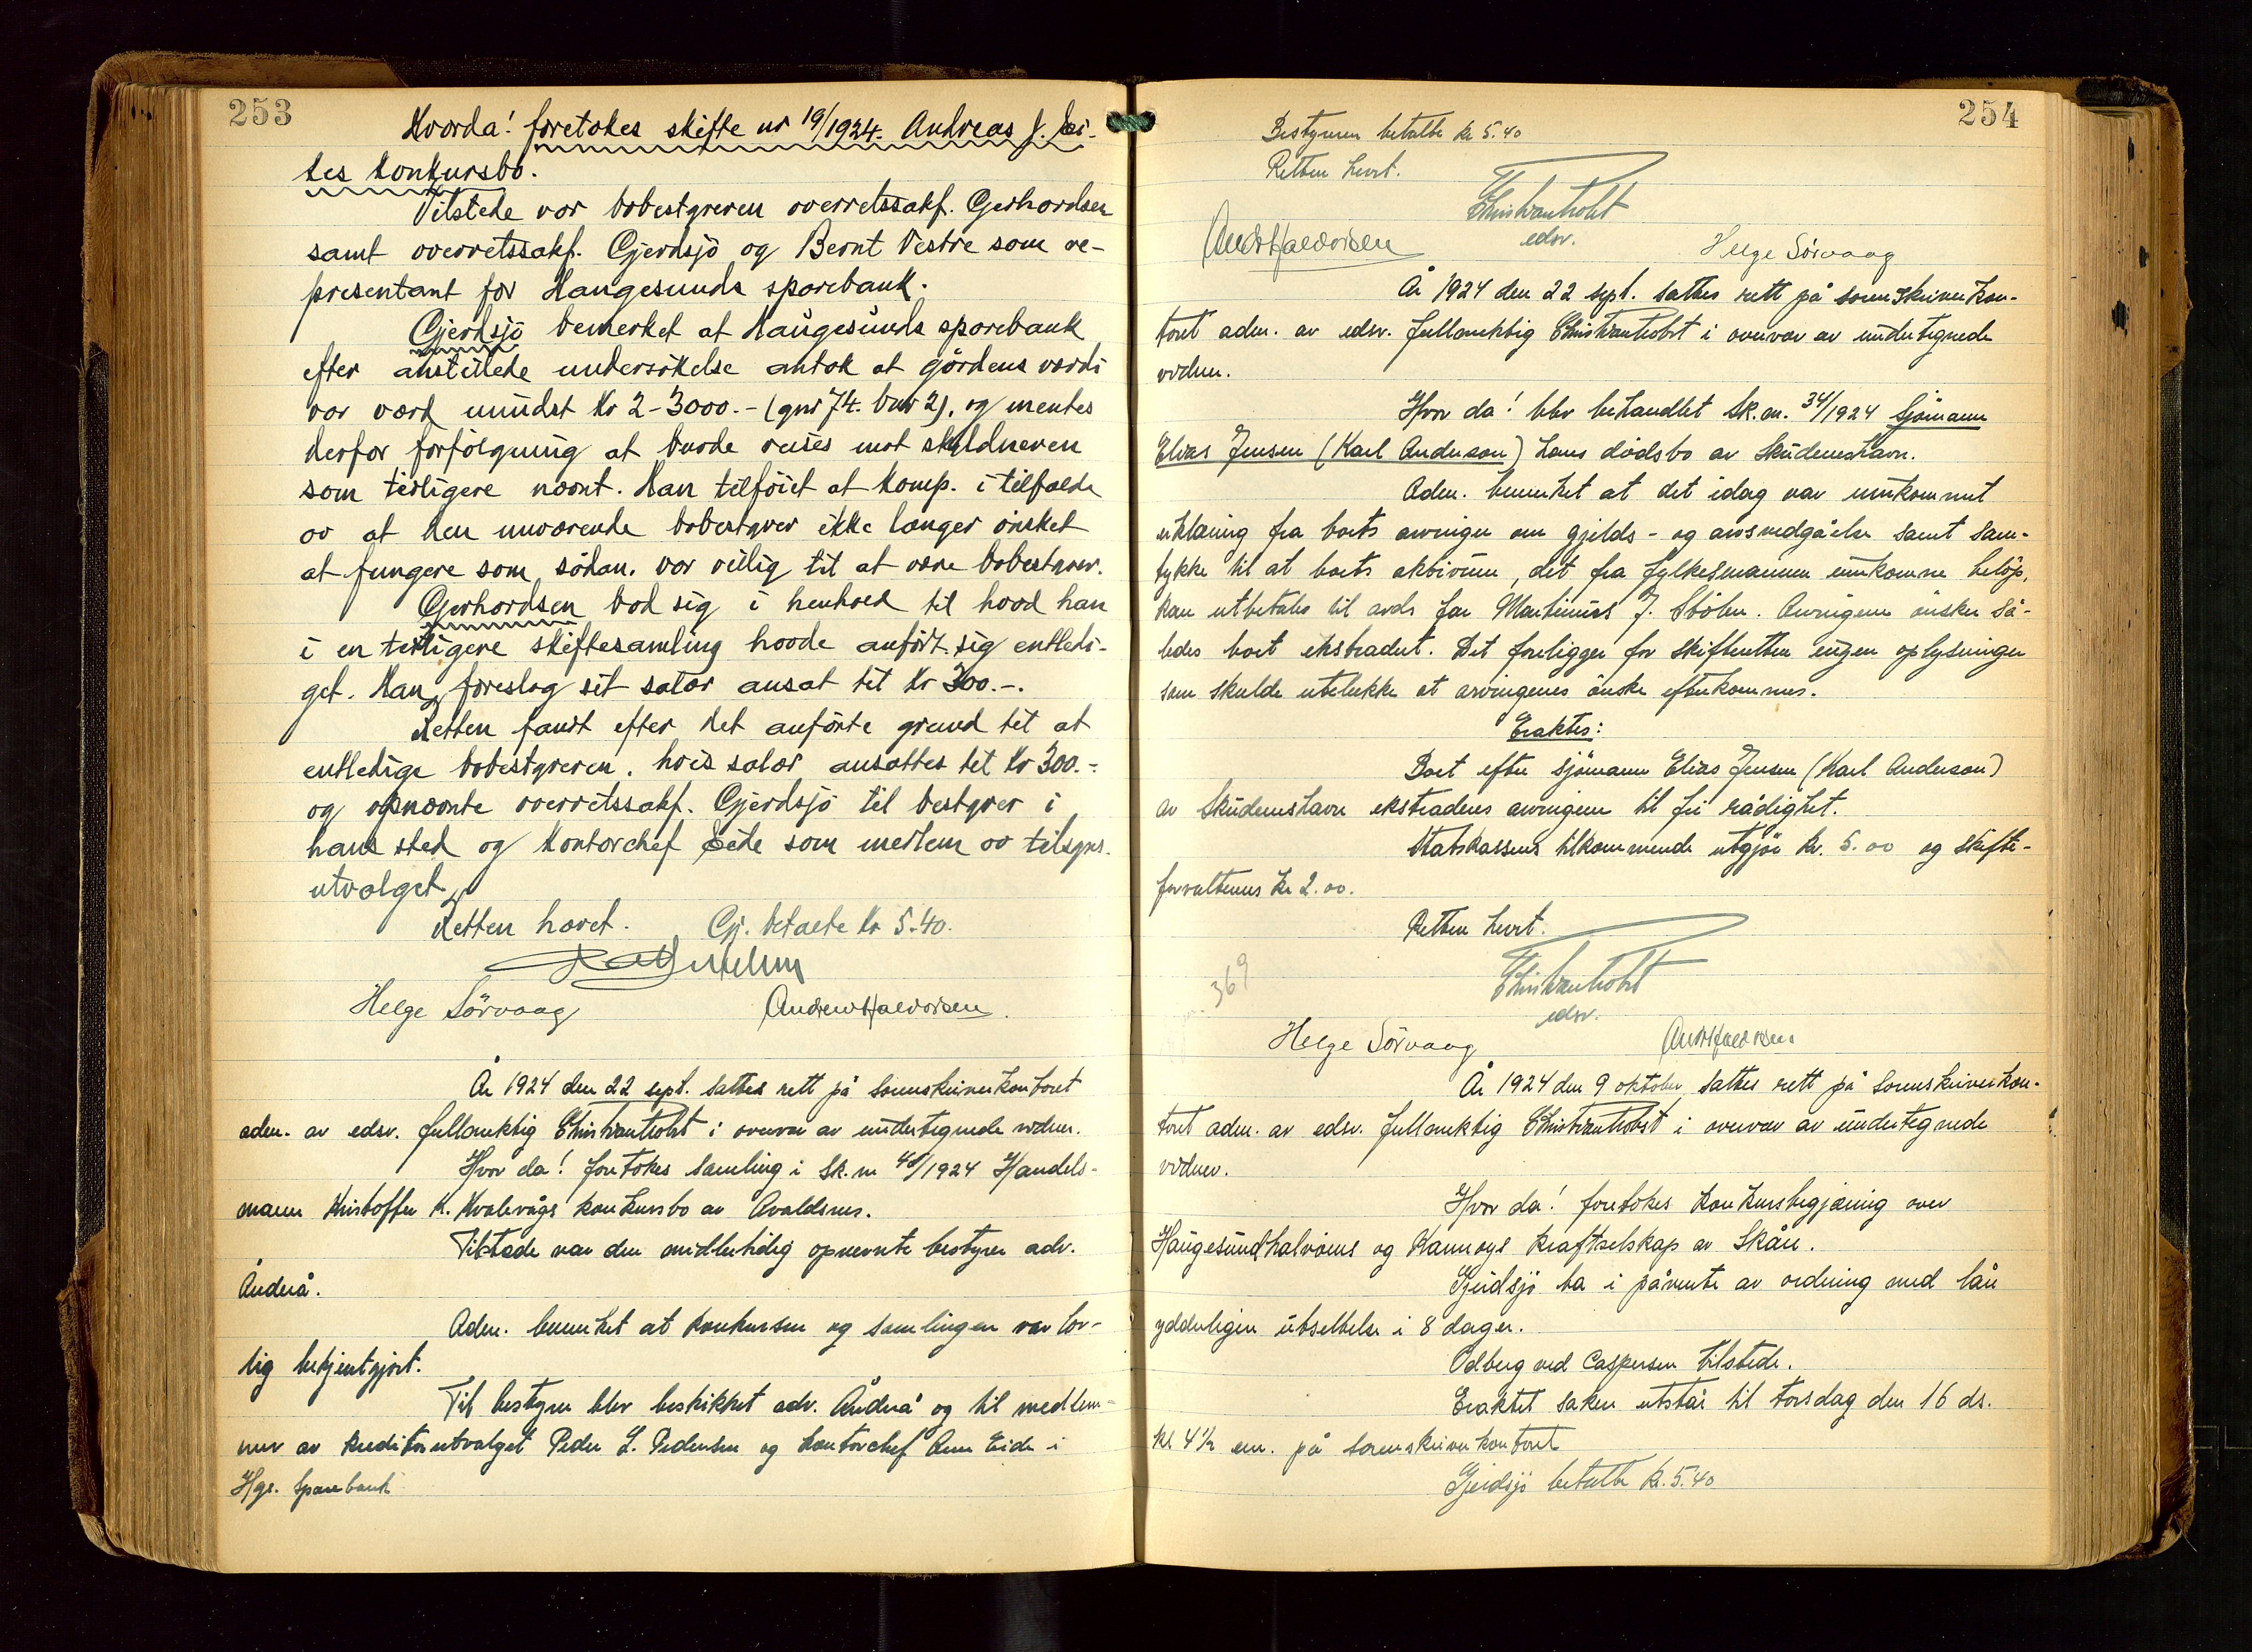 253
Hvorda! foretokes skifte nr 19/1924. Andreas J. Lei-
tes konkursbo.
Tilstede var bobestyreren overretssakf. Gerhardsen
samt overretssakf. Gjerdsjö og Bernt Vestre som re-
presentant for Haugesunds sparebank.
Gjerdsjö bemerket at Haugesunds sparebank
efter anstillede undersökelse antok at gårdens værdi
var værd mindst Kr 2-3000.- (gnr 74. bnr 2), og mentes
derfor forfölgning at burde reises mot skyldneren
som tidligere nævnt. Han tilföiet at komp. i tilfælde
av at den nuværende bobestyrer ikke længer önsket
at fungere som sådan, var villig til at være bobestyrer.
Gerhardsen bad sig i henhold til hvad han
i en tidligere skiftesamling havde anfört sig entledi-
get. Han foreslog sit salær ansat til kr 300.-.
Retten fandt efter det anförte grund til at
entledige bobestyreren, hvis salær ansattes til kr 300.-
og opnævnte overretssakf. Gjerdsjö til bestyrer i
hans sted og kontorchef Eide som medlem av tilsyns-
utvalget.
Retten hævet. Gj. betalte kr 5.40.
Helge Sörvaag Andrew Halvorsen
År 1924 den 22 sept. sattes rett på sorenskriverkontoret
adm. av edsv. fullmektig Christian Holst i overvær av undertegnede vidner.
Hvor da! foretokes samling i Sk. nr 48/1924 Handels-
mann Kristoffer K. Kvalevågs konkursbo av Avaldsnes.
Tilstede var den midlertidig opnevnte bestyrer adv.
Åndrå.
Adm. bemerket at konkursen og samlingen var lov-
lig bekjentgjort.
Til bestyrer blev beskikket adv. Åndrå og til medlem-
mer av kreditorutvalget Peder L. Pedersen og kontorchef Arne Eide i
Hgs. Sparebank
254
Bestyreren betalte kr 5.40
Retten hevet.
Christian Holst
edsv.
Andr Halvorsen Helge Sörvaag
År 1924 den 22 sept. sattes rett på sorenskriverkon-
toret adm. av edsv. fullmektig Christian Holst i overvær av undertegnede
vidner.
Hvor da! blev behandlet Sk. nr. 34/1924 Sjömann
Elias Jensen (Karl Anderson) hans dödsbo av Skudeneshavn.
Adm. bemerket at det idag var innkommet
erklæring fra boets arvinger om gjelds- og arvsvedgåelse samt sam-
tykke til at boets aktivum, det fra fylkesmannen innkomne belöp,
kan utbetales til avds far Martinius J. Stölen. Arvingene önsker så-
ledes boet ekstradert. Det foreligger for skifteretten ingen oplysninger
som skulde utelukke at arvingenes önske efterkommes.
Eraktes:
Boet efter sjömann Elias Jensen (Karl Anderson)
av Skudeneshavn ekstraderes arvingene til fri rådighet.
Statskassens tilkommende utgjör kr. 5.00 og skifte-
forvalterens kr 2.00.
Retten hevet.
369
Christian Holst
edsv.
Helge Sörvaag Andr Halvorsen
År 1924 den 9 oktober sattes rett på sorenskriverkon-
toret adm. av edsv. fullmektig Christian Holst i overvær av undertegnede
vidner.
Hvor da! foretokes konkursbegjæring over
Haugesundhalvöens og Karmöys kraftselskap av Skåre.
Gjerdsjö ba i påvente av ordning med lån
ydderligere utsettelse i 8 dager.
Odberg ved Caspersen tilstede.
Eraktet saken utstår til torsdag den 16 ds.
kl 4½ em. på sorenskriverkontoret
Gjerdsjö betalte kr. 5.40